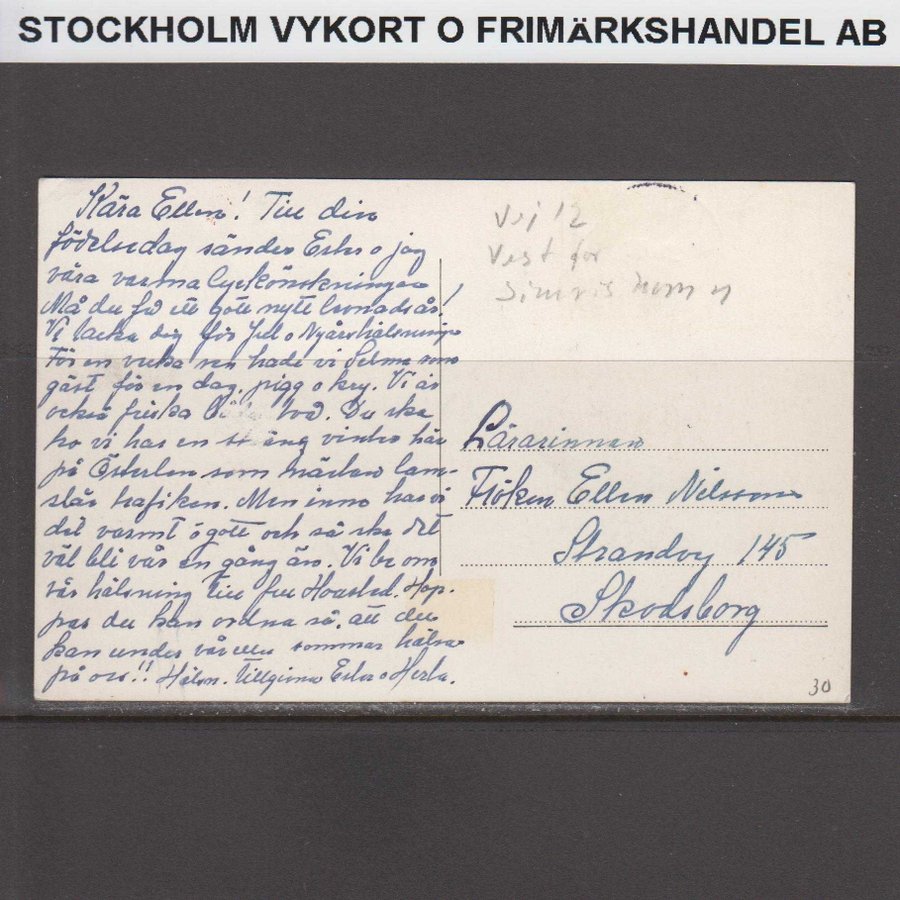 STOCKHOLM VYKORT O FRIMÄRKSHANDEL AB
Kära Ellen! Till din
födelsedag sänder Ester o jag
våra varma lyckönskningar
Må du få ett gott nytt levnadsår!
Vi tacka dig för Jul o Nyårshälsning
För en vecka sen hade vi Selma som
gäst för en dag, pigg o kry. Vi är
också friska båda två. Du ska
tro vi har en sträng vinter här
på Österlen som nästan lam-
slår trafiken. Men inne har vi
det varmt o gott och så ska det
väl bli vår en gång än. Vi be om
vår hälsning till fru Hoasted. Hop-
pas du kan ordna så, att du
kan under vår eller sommar hälsa
på oss!! Hälsn. Tillgivna Ester o Herla.
Vej 12
Vest for
Simrishamn
Lärarinnan
Fröken Ellen Nilsson
Strandvej 145
Skodsborg
30